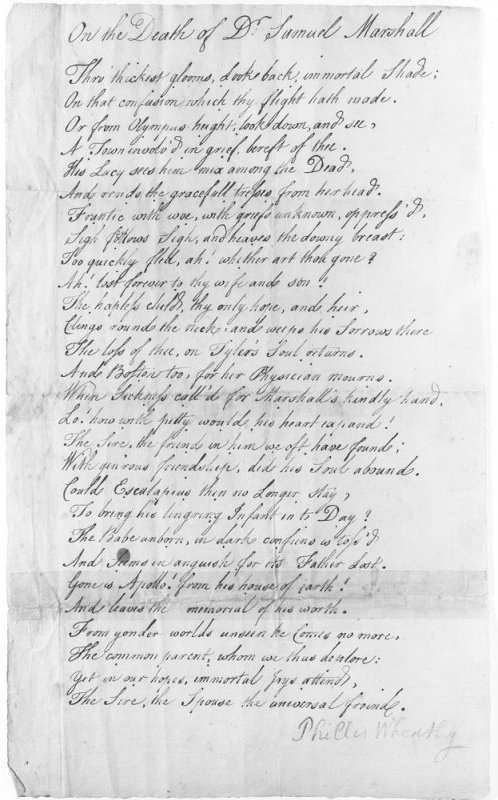 On the Death of Dr Samuel Marshall
Thro' thickest glooms, Look back, immortal Shade;
On that confusion which thy flight hath made.
Or from Olympus height, look down, and see,
A Town involv'd in grief, bereft of thee.
His Lucy sees him mix among the Dead,
And rends the gracefull tresses from her head.
Frantic with woe, with griefs unknown, oppress'd,
Sigh follows Sigh, and heaves the downy breast;
Too quickly fled, ah! whither art thou gone?
Ah! lost forever to thy wife and son!
The hapless child, thy only hope, and heir,
Clings round the neck! and weeps his Sorrows there
The loss of thee, on Tyler's Soul returns.
And Boston too, for her Physician mourns.
When Sickness call'd for Marshall's kindly hand.
Lo! how with pitty would his heart expand!
The Sire, the friend in him we oft have found;
With genirous friendship, did his Soul abound.
Could Esculapius then no Longer, Stay,
To bring his lingring Infant in to Day?
The Babe unborn, in dark confines is toss'd
And Seems in anguish for its Father Lost.
Gone is Apollo! from his house of earth!
And leaves the memorial of his worth.
From yonder worlds unseen he Comes no more,
The common parent, whom we thus deplore;
Yet in our hopes, immortal Joys attend,
The Sire, the Spouse the universal friend.
Phillis Wheatly